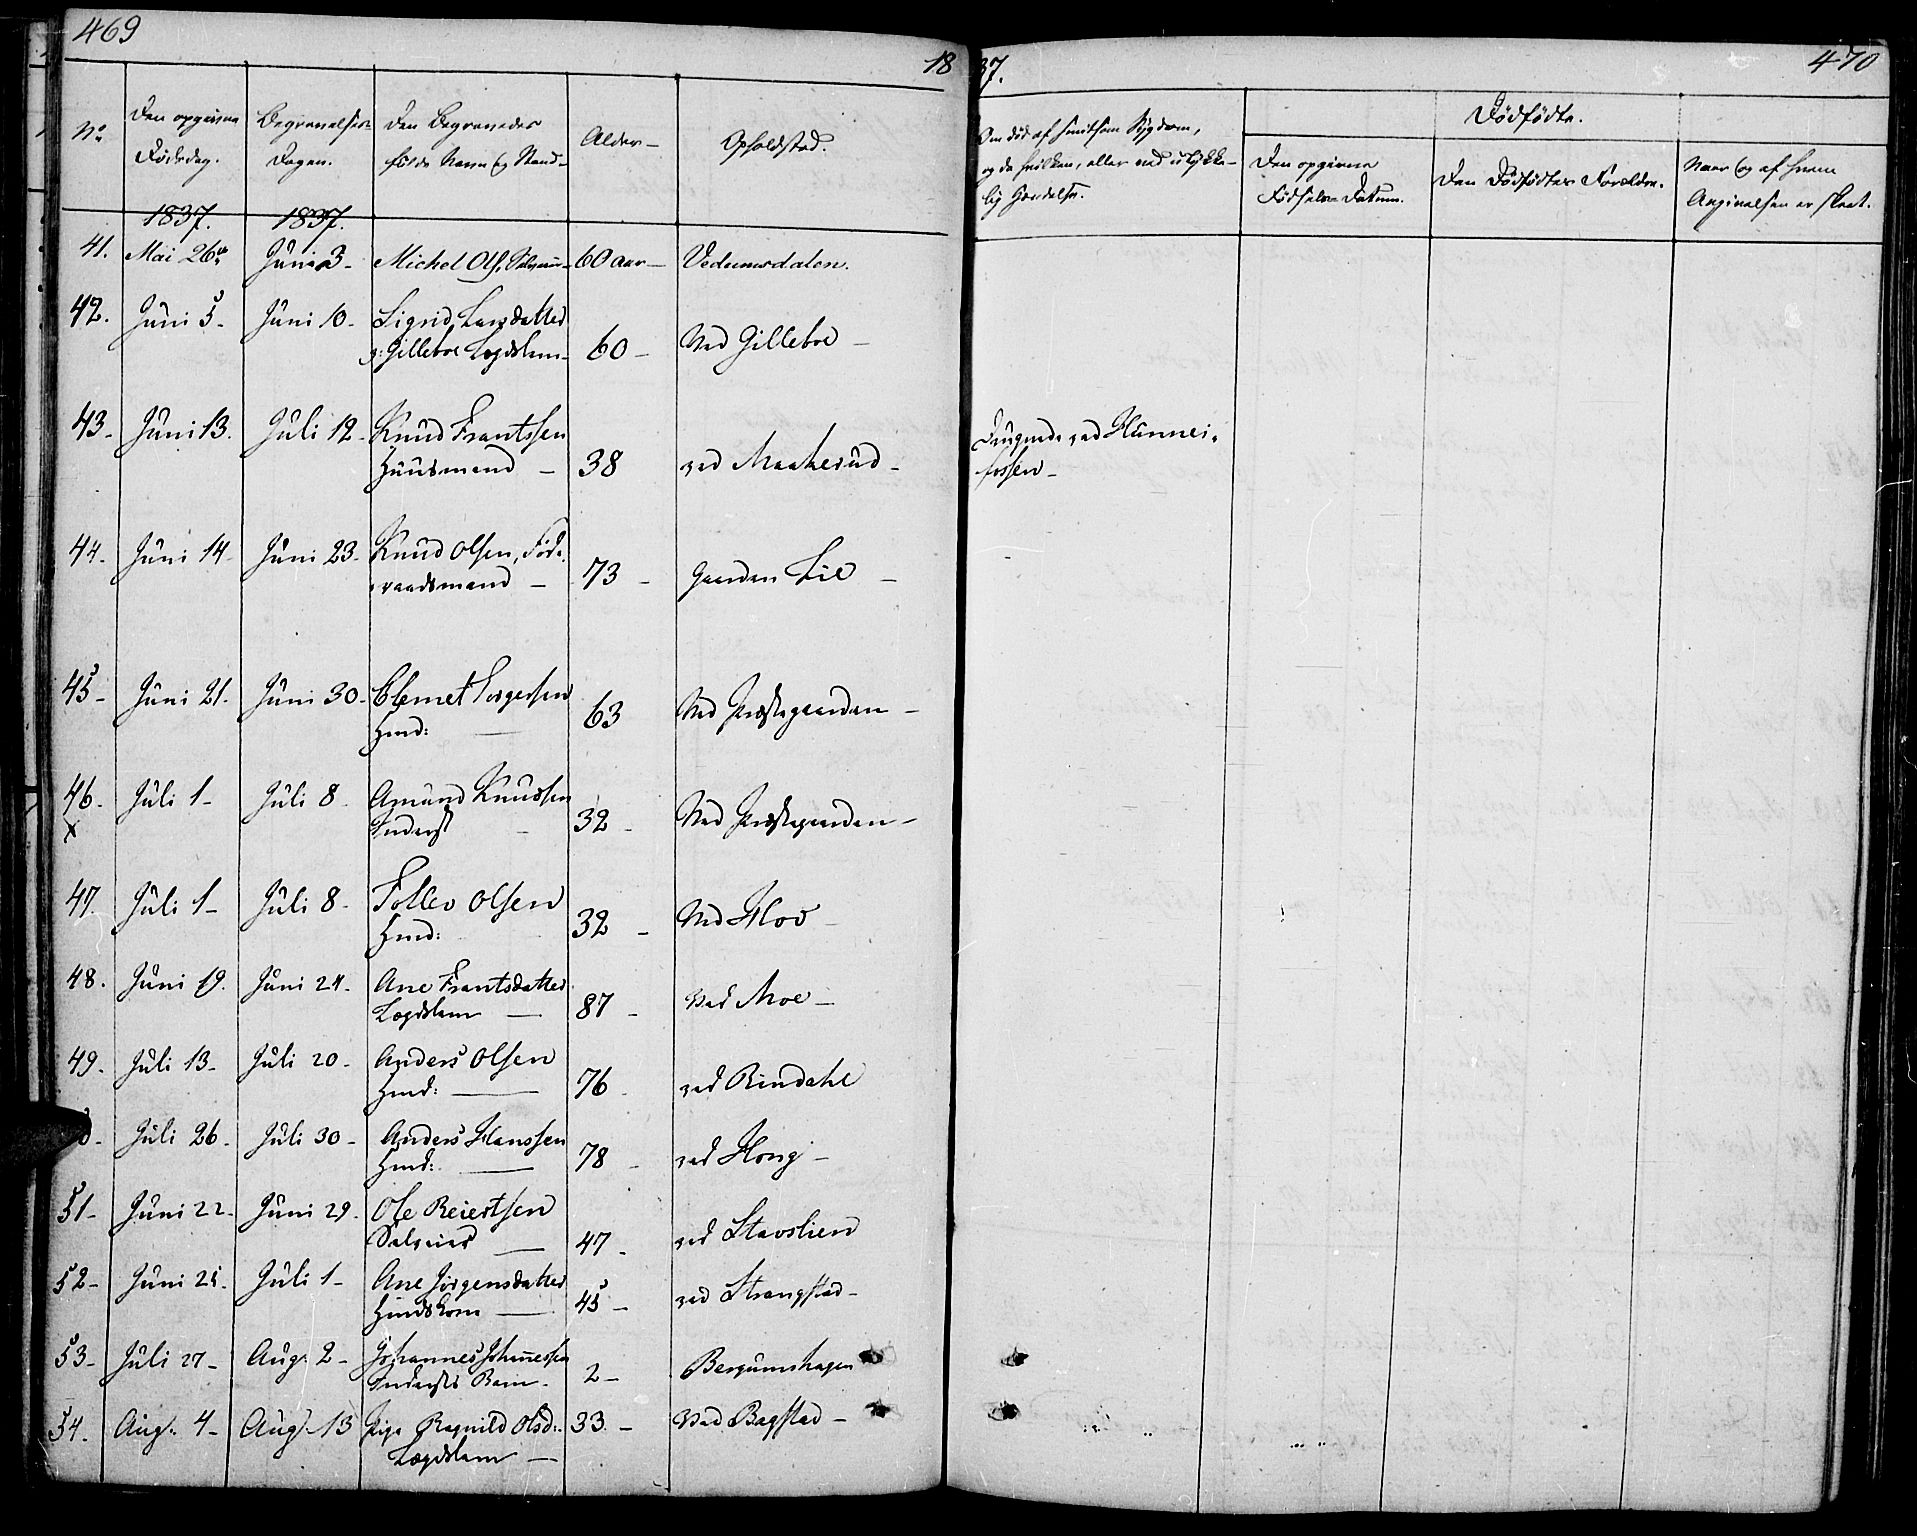 469
18
37.
470
No
Den opgivne Dødsdag.
Begravelses-Dagen.
Den Begravedes fulde Navn og Stand-
Alder-
Opholdsted.
Om død af smitsom Sygdom, og da hvilken, eller ved ulykke-lig Hændelse.
Dødfødte.
Den opgivne Fødselens Datum.
Den Dødfødtes Forældre.
Naar og af hvem Angivelsen er skeet.
1837. 1837.
41. Mai 26de Juni 3- Michel Ols. 60 aar- Vedumsdalen.
42. Juni 5- Juni 10- Sigrid Larsdatter
g: Gilleboe Lægdslem- 60- Ved Gilleboe-
43- Juni 13. Juli 12- Knud Frantssen
Huusmand- 38 ved Maakerud- Druknede ved Hunnei-
fossen-
44- Juni 14- Juni 23- Knud Olsen, Føde-
raadsmand- 73- Gaarden Lie-
45- Juni 21. Juni 30- Clemet Torgersen
Hmd: - 63 Ved Præstegaarden-
46- Juli 1- Juli 8- Amund Knudsen
x Inderst- 32- Ved Præstegaarden-
47. Juli 1- Juli 8- Tollev Olsen
Hmd: 32- Ved Hov-
48. Juni 19. Juni 24- Ane Frantsdatter
Lægdslem- 87- Ved Moe-
49- Juli 13- Juli 20- Anders Olsen
Hmd: - 76- ved Rindahl
0- Juli 26- Juli 30- Anders Hanssen
Hmd: - 78- ved Hong-
51- Juni 22- Juni 29- Ole Reiertsen
Selveier- 47- ved Stavslien
52- Juni 25- Juli 1- Ane Jørgensdatter
Hmdskone- 45- ved Strangstad-
53- Juli 27- Aug. 2- Johannes Johannessen
Inderstes Barn- 2- Bergumshagen
54- Aug. 4- Aug. 13 Pige Ragnild Olsd:
Lægdslem- 33- Ved Bagstad-